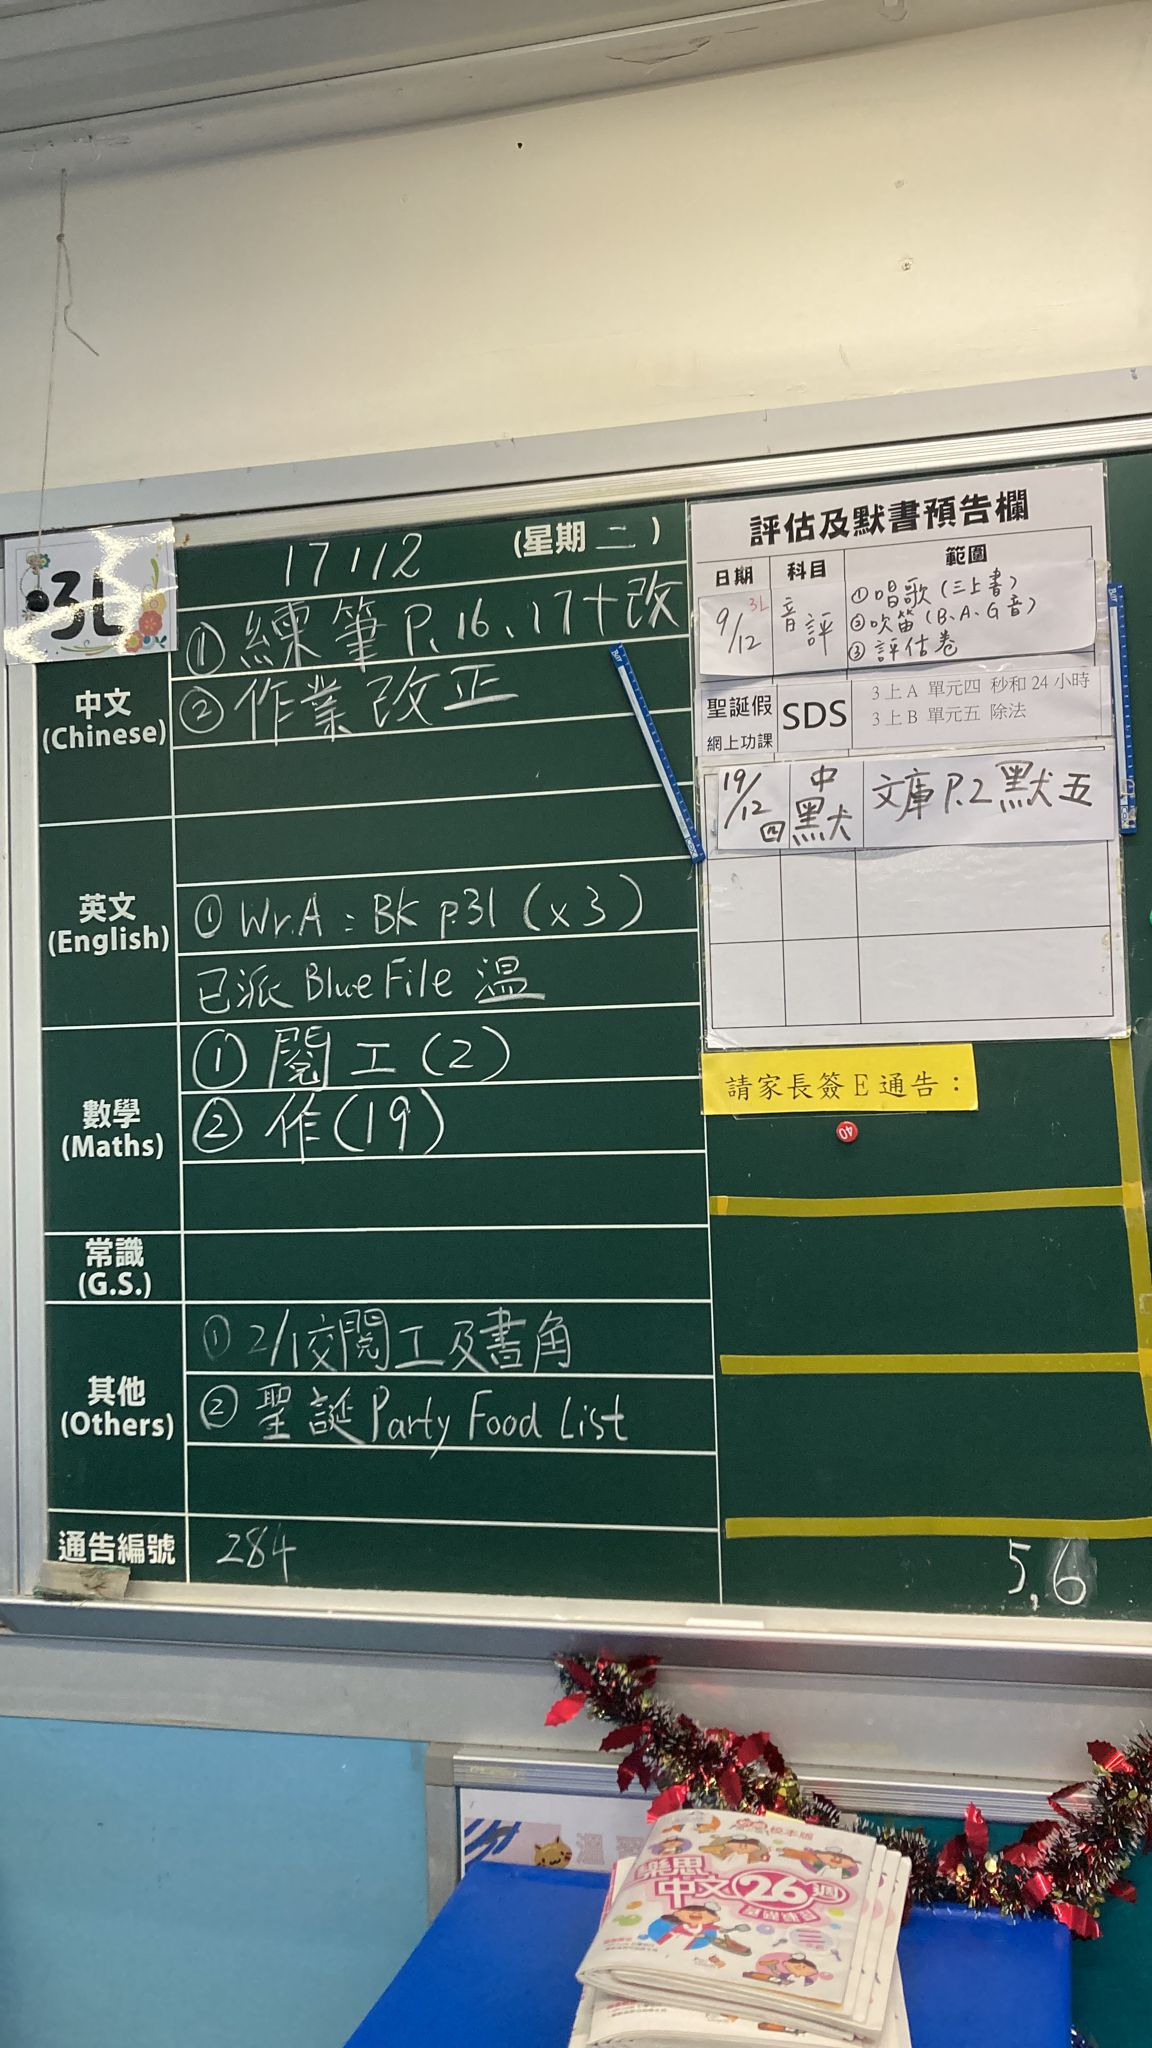 3L
17/12
(星期 二)
中文
(Chinese)
① 練筆 P. 16、17+改
② 作業改正
英文
(English)
① Wr.A : BK p.31 (x3)
已派 Blue File 溫
數學
(Maths)
① 閱工(2)
② 作(19)
常識
(G.S.)
其他
(Others)
① 2/1交閱工及書角
② 聖誕 Party Food List
通告編號
284
評估及默書預告欄
日期 科目 範圍
9/12 3L 音評 ①唱歌(三上書)
②吹笛(B、A、G音)
③評估卷
聖誕假
網上功課
SDS
3上A 單元四 秒和24小時
3上B 單元五 除法
19/12 四 中默 文庫 P.2 默五
請家長簽E通告：
40
5,6
校本版
樂思
中文26週